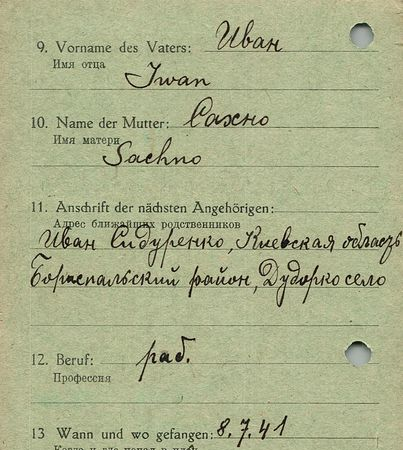 9. Vorname des Vaters: Иван
Имя отца
Iwan
10. Name der Mutter: Сахно
Имя матери
Sachno
11. Anschrift der nächsten Angehörigen:
Адрес ближайших родственников
Иван Сидуренко, Киевская область
Бориспальский район, Дударко село
12. Beruf: раб.
Профессия
13 Wann und wo gefangen: 8.7.41
Когда и где попал в плен